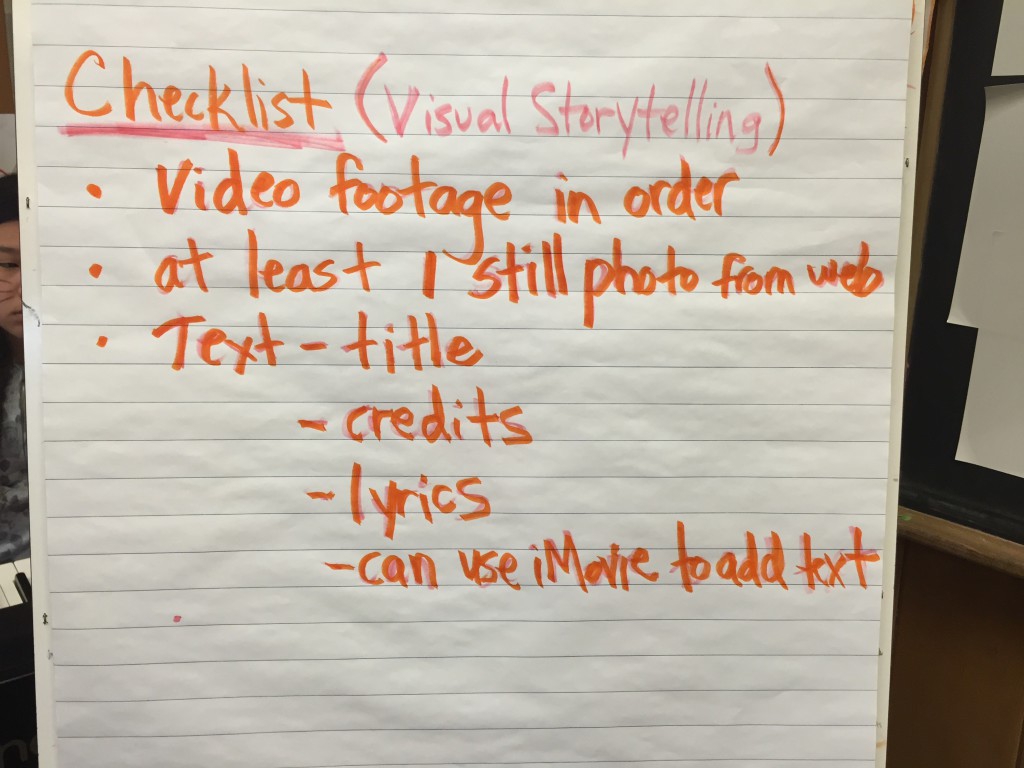 Checklist (Visual Storytelling)
• Video footage in order
• at least 1 still photo from web
• Text - title
- credits
- lyrics
- can use iMovie to add text